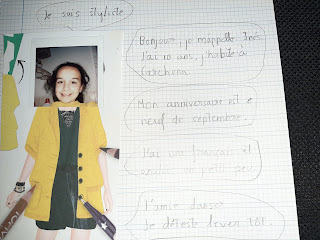 Je suis styliste
Bonjour, je m'appelle Inès
J'ai 10 ans, j'habite à
Mon anniversaire est e
neuf de septembre.
J'ai une français et
un petit peu
J'aime danser
Je déteste lever tôt